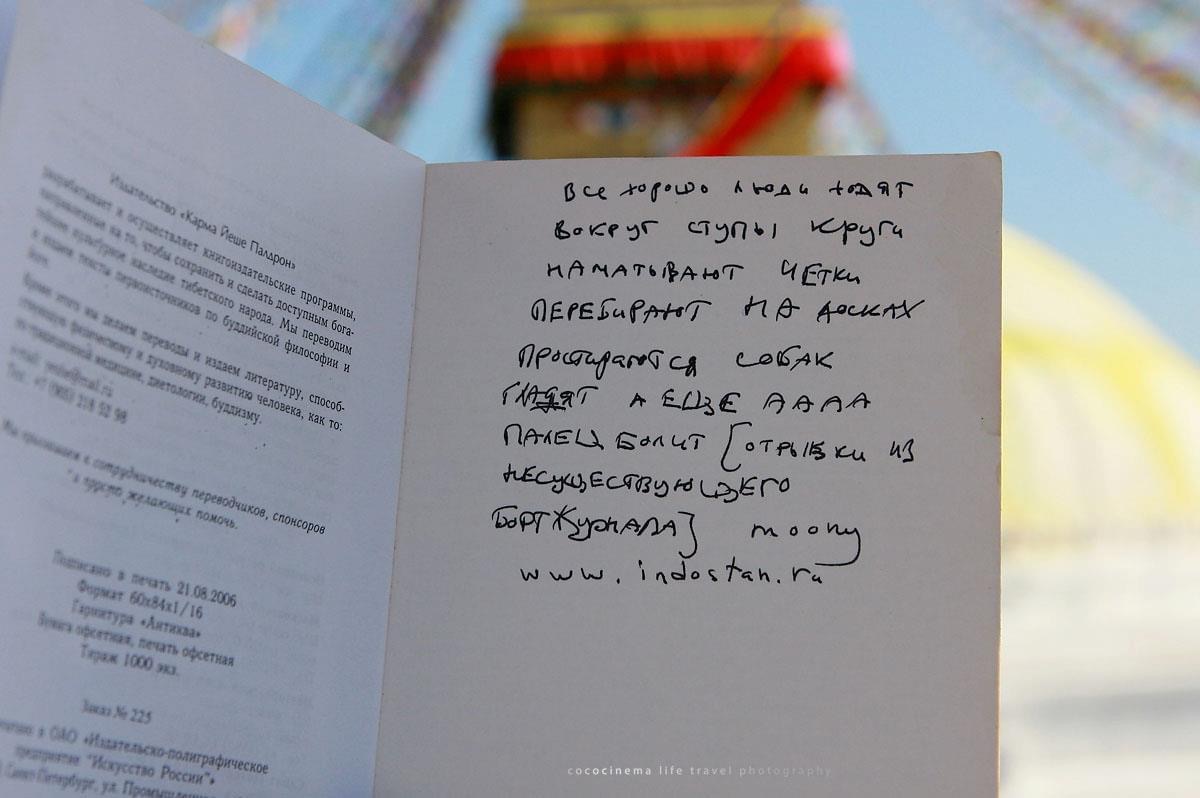 Издательство «Карма Йеше Палдрон»
разрабатывает и осуществляет книгоиздательские программы,
направленные на то, чтобы сохранить и сделать доступным бога-
тейшее культурное наследие тибетского народа. Мы переводим
и издаем тексты первоисточников по буддийской философии и
йоге.
Кроме этого мы делаем переводы и издаем литературу, способ-
ствующую физическому и духовному развитию человека, как то:
по традиционной медицине, диетологии, буддизму.
e-mail:
Тел.: +7 (905) 218 52 98
Мы приглашаем к сотрудничеству переводчиков, спонсоров
и просто желающих помочь.
Подписано в печать 21.08.2006
Формат 60х84х1/16
Гарнитура «Антиква»
Бумага офсетная, печать офсетная
Тираж 1000 экз.
Заказ № 225
в ОАО «Издательско-полиграфическое
предприятие "Искусство России"»
Санкт-Петербург, ул.
Все хорошо люди ходят
вокруг ступы круги
наматывают четки
перебирают на досках
простираются собак
гладят а еще аааа
палец болит [отрывки из
несуществующего
бортжурнала] moony
www.indostan.ru
cococinema life travel photography